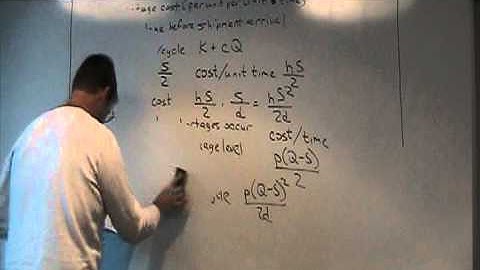 cost (per unit per unit of time)
before shipment arrival
cycle K + cQ
S/2 cost/unit time hS/2
cost hS/2 · S/d = hS²/2d
occur cost/time
level p(Q-S)/2
p(Q-S)²/2d